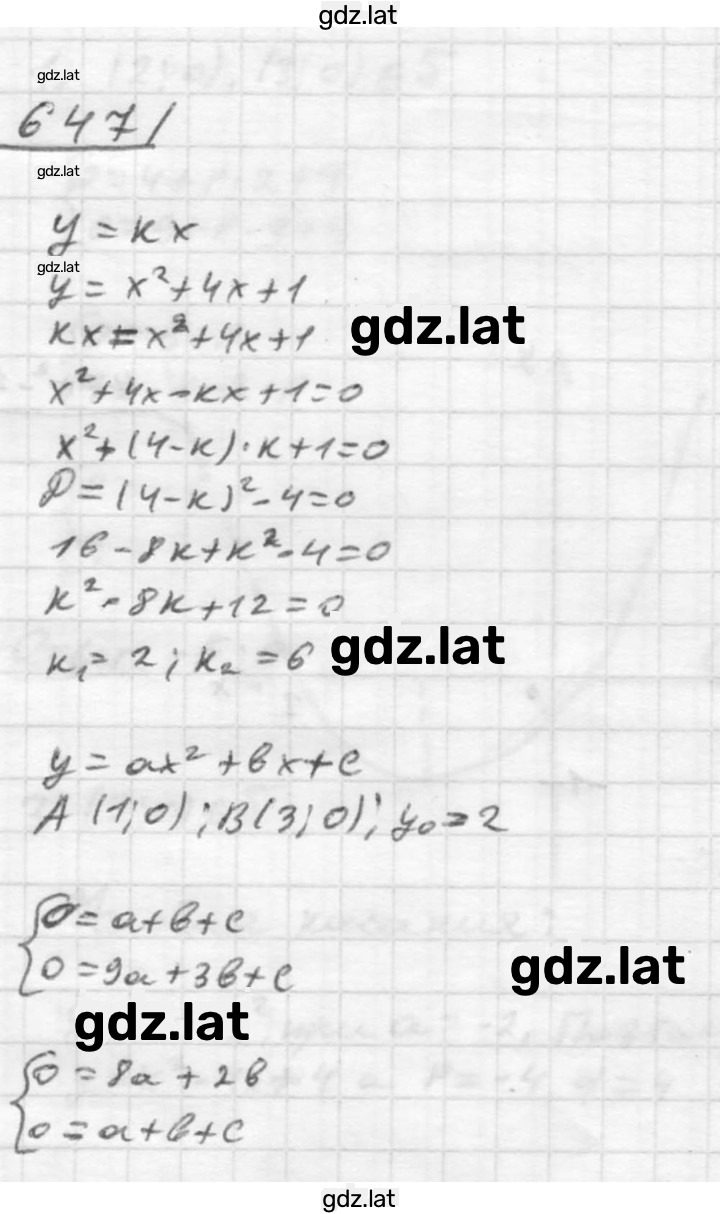 gdz.lat
gdz.lat
647/
gdz.lat
y = кx
gdz.lat
y = x²+4x+1
кx = x²+4x+1
gdz.lat
x²+4x-кx+1=0
x²+(4-к)·к+1=0
D=(4-к)²-4=0
16-8к+к²-4=0
к²-8к+12=0
к₁=2; к₂=6
gdz.lat
y = ax²+bx+c
A(1;0); B(3;0); y₀=2
0=a+b+c
0=9a+3b+c
gdz.lat
gdz.lat
0=8a+2b
0=a+b+c
gdz.lat